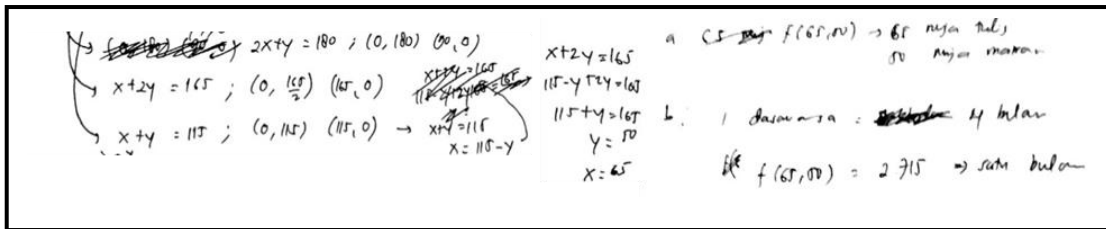 2x+y = 180 ; (0, 180) (90, 0)
x+2y = 165 ; (0, 165/2) (165, 0)
x+y = 115 ; (0, 115) (115, 0) → x+y = 115
x = 115-y
x+2y = 165
115-y+2y = 165
115+y = 165
y = 50
x = 65
a f(65,50) → 65 meja tulis
50 meja makan
b. 1 dasawarsa = 4 bulan
f(65,50) = 2 715 ⇒ satu bulan